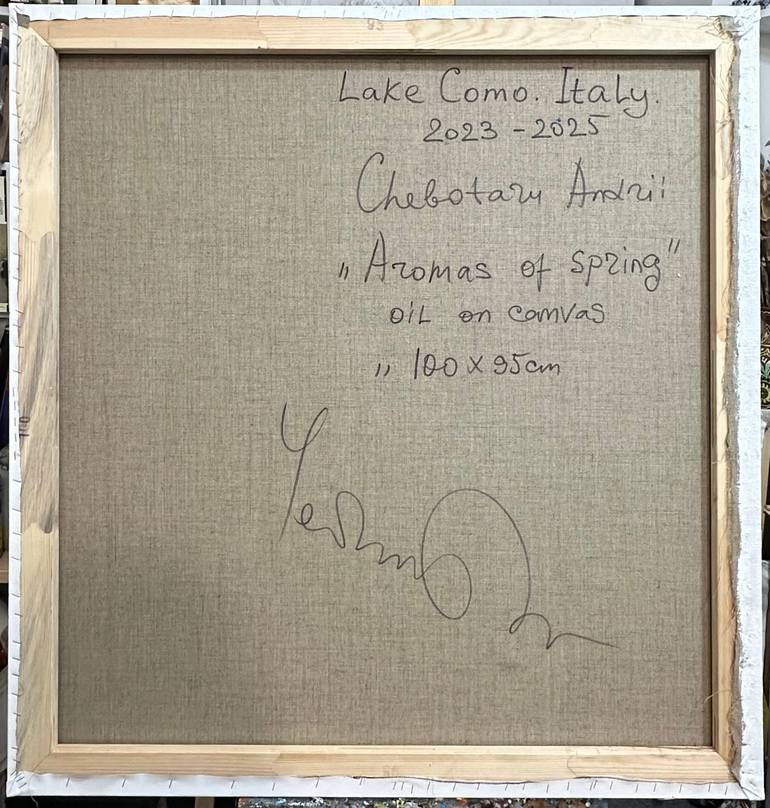 95
Lake Como. Italy.
2023 - 2025
Chebotaru Andrii
„Aromas of spring"
oil on canvas
„ 100 x 95cm
100